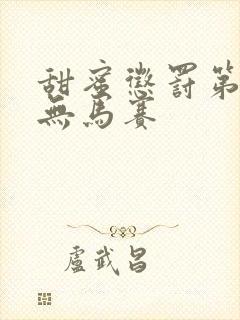 甜蜜懲罰第
無馬賽
盧武昌